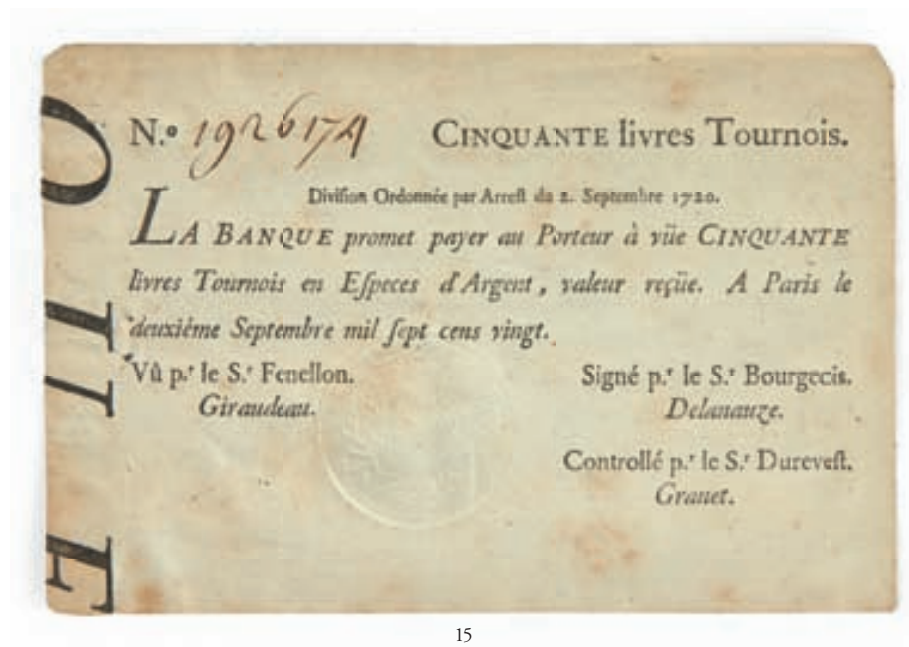 N.º 1926174 CINQUANTE livres Tournois.
Division Ordonnée par Arrest du 2. Septembre 1720.
LA BANQUE promet payer au Porteur à vüe CINQUANTE
livres Tournois en Eſpeces d'Argent, valeur reçüe. A Paris le
deuxiéme Septembre mil ſept cens vingt.
Vû p.r le S.r Fenellon. Signé p.r le S.r Bourgeois.
Giraudeau. Delanauze.
Controllé p.r le S.r Dureveſt.
Granet.
15